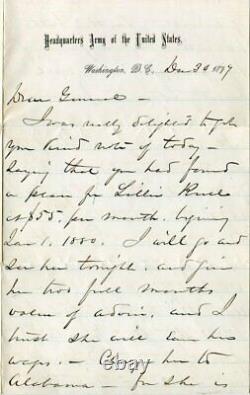 Headquarters Army of the United States,
Washington, D. C., Dec 30 1879
Dear General —
I was really delighted to get
your kind note of today —
saying that you had found
a place for Lillie
at $55. per month. beginning
Jan 1. 1880. I will go and
see her tonight, and give
her two full months
value of advice, and I
trust she will earn her
wages. — Charge her to
Alabama — for she is
© ebay